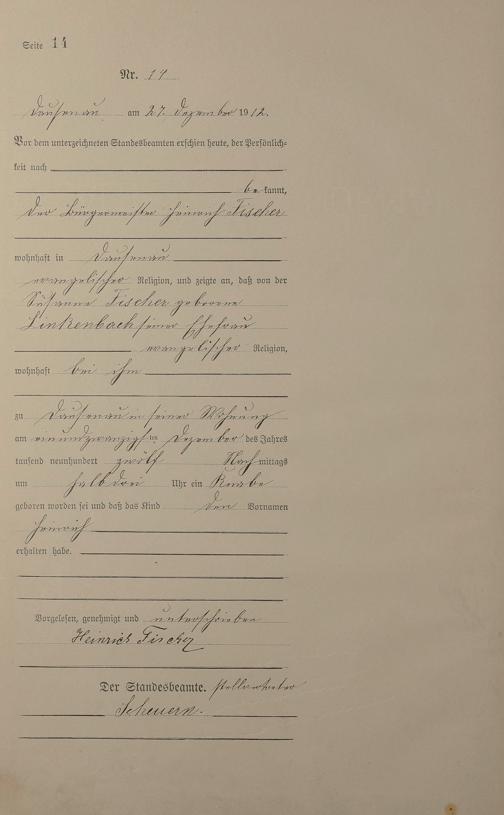 Seite 14
Nr. 14
Dausenau am 27. Dezember 1912.
Vor dem unterzeichneten Standesbeamten erschien heute, der Persönlich-
keit nach
be kannt,
der Bürgermeister Heinrich Fischer
wohnhaft in Dausenau
evangelischer Religion, und zeigte an, daß von der
Susanne Fischer geborene
Linkenbach seiner Ehefrau
evangelischer Religion,
wohnhaft bei ihm
zu Dausenau in seiner Wohnung
am einundzwanzigsten Dezember des Jahres
tausend neunhundert zwölf Nach mittags
um halb drei Uhr ein Knabe
geboren worden sei und daß das Kind den Vornamen
Heinrich
erhalten habe.
Vorgelesen, genehmigt und unterschrieben
Heinrich Fischer
Der Standesbeamte.
Scheuern.